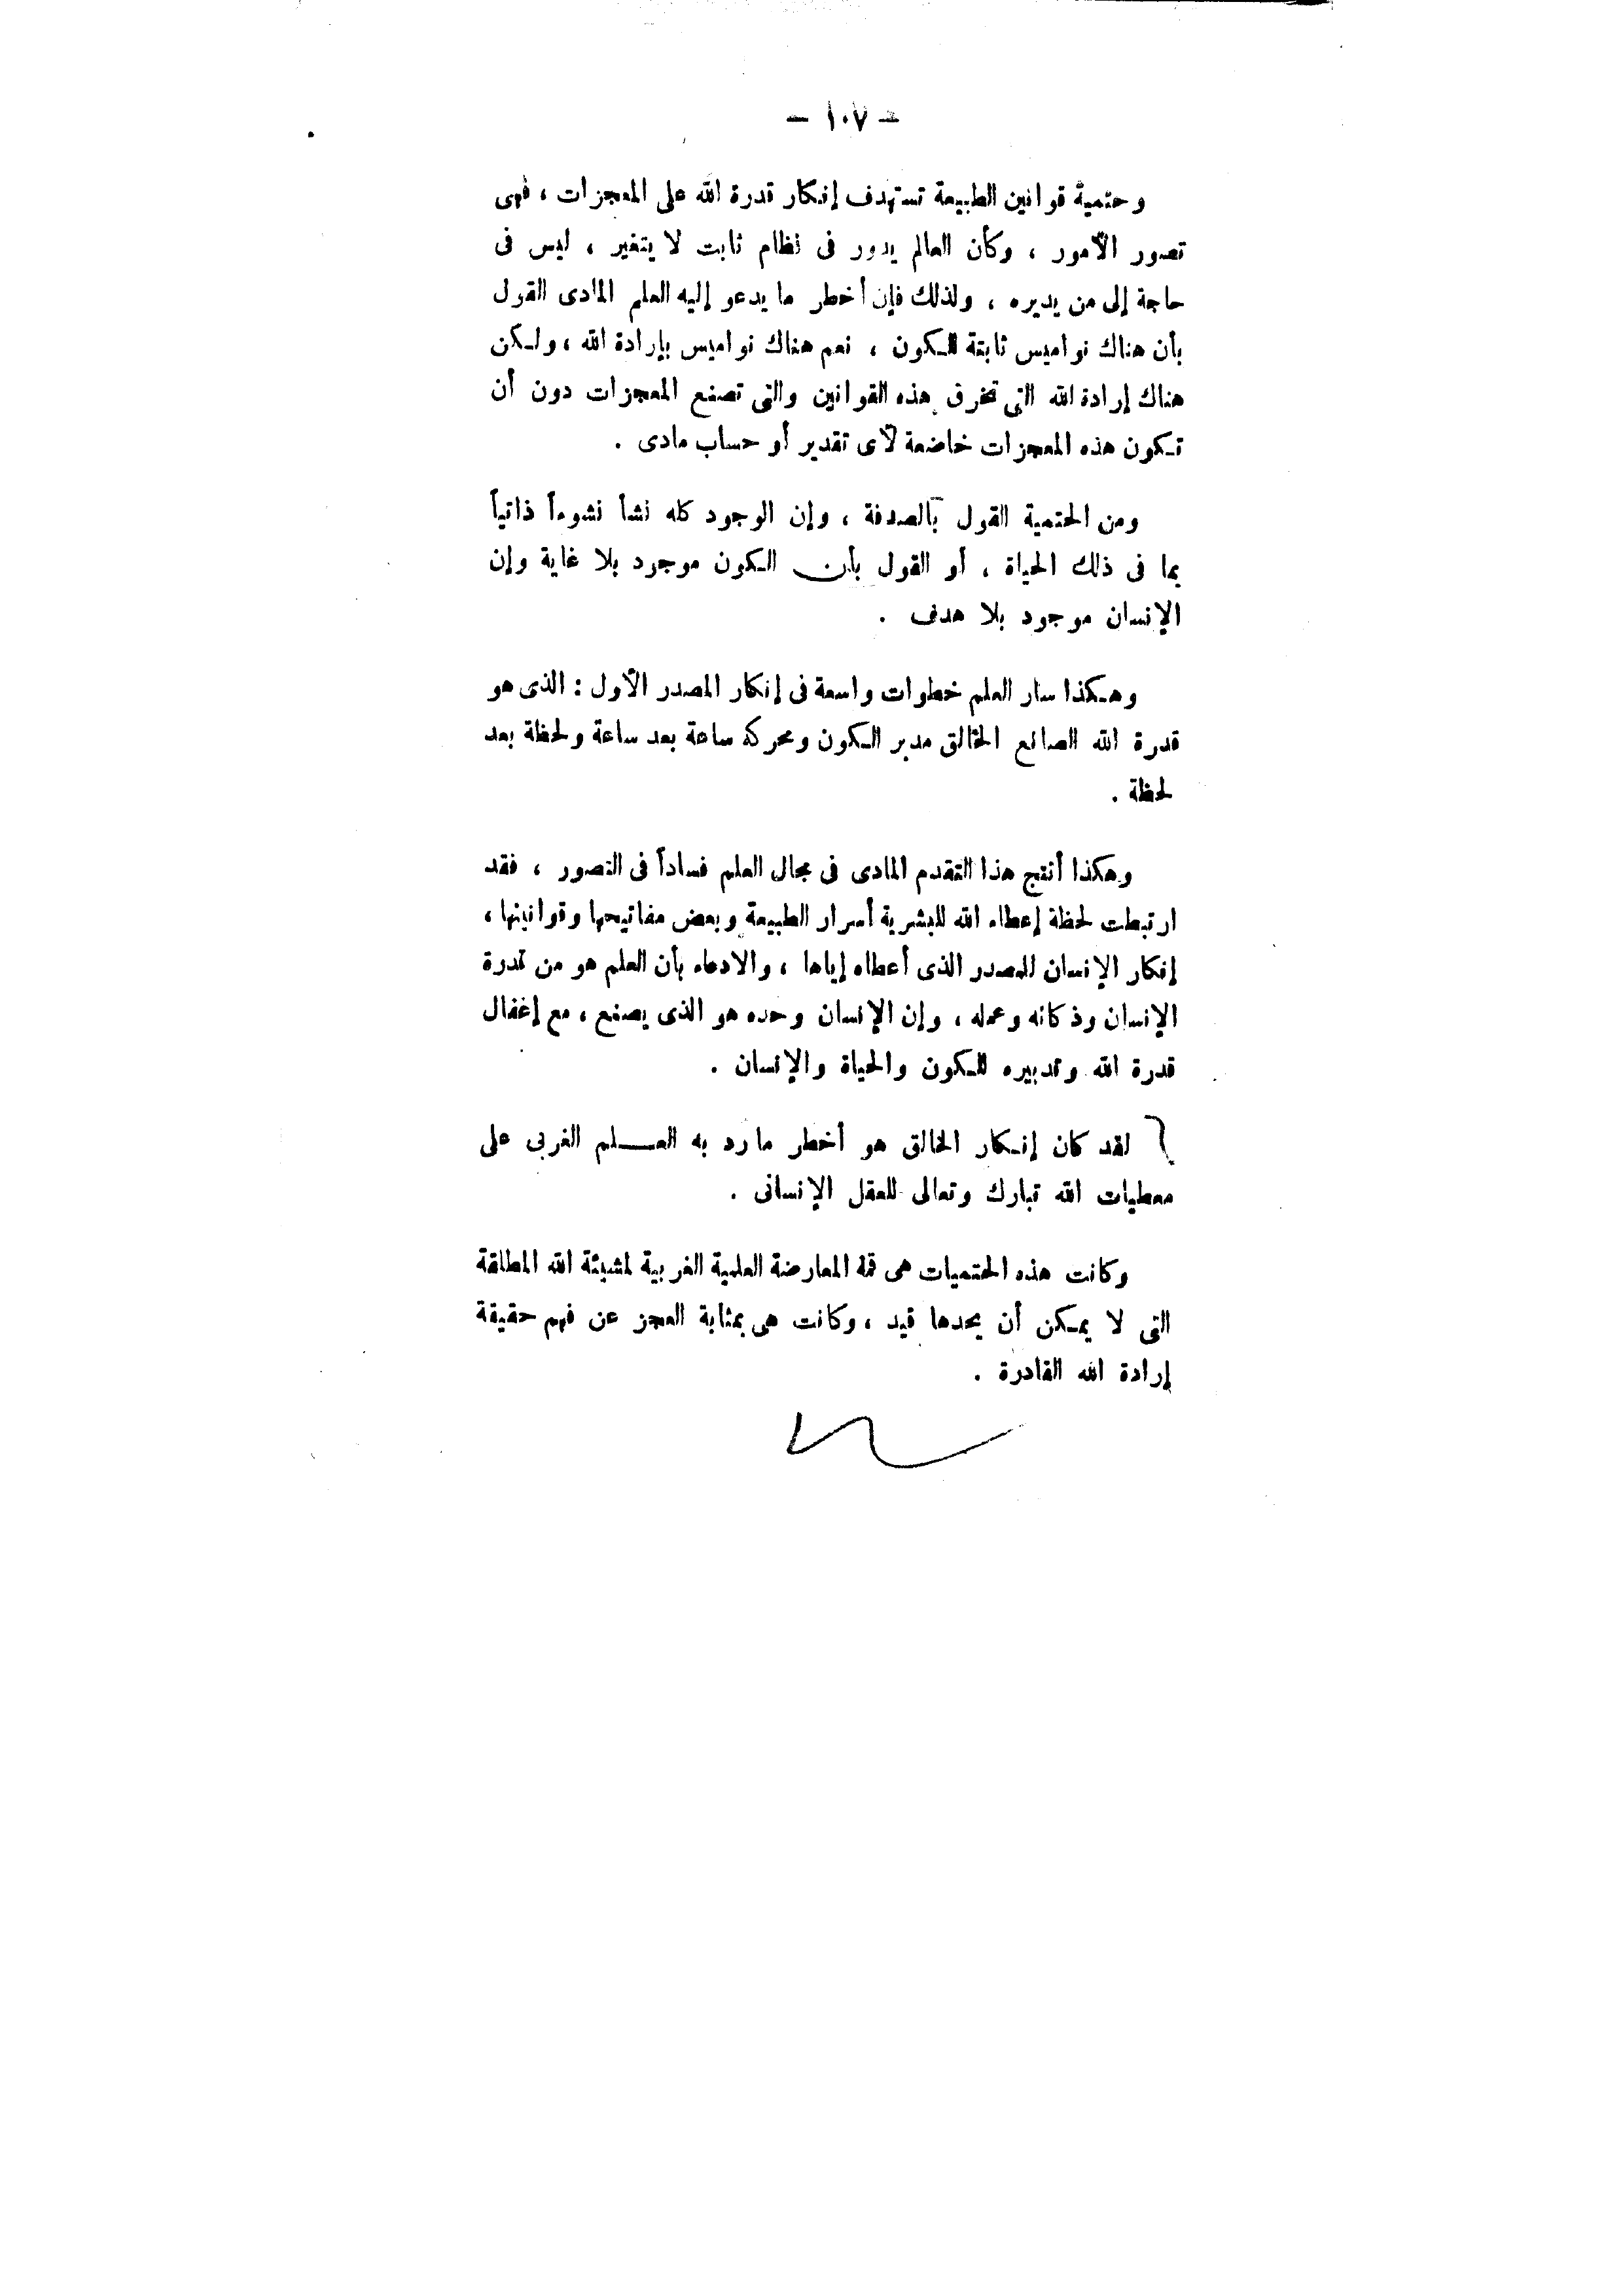 — ١٠٧ —
وحتمية قوانين الطبيعة تستهدف إنكار قدرة الله على المعجزات ، فهى
تصور الأمور ، وكأن العالم يدور فى نظام ثابت لا يتغير ، ليس فى
حاجة إلى من يديره ، ولذلك فإن أخطر ما يدعو إليه العلم المادى القول
بأن هناك نواميس ثابتة للكون ، نعم هناك نواميس بإرادة الله ، ولكن
هناك إرادة الله التى تخرق هذه القوانين والتى تصنع المعجزات دون أن
تكون هذه المعجزات خاضعة لأى تقدير أو حساب مادى .
ومن الحتمية القول بالصدفة ، وإن الوجود كله نشأ نشوءاً ذاتياً
بما فى ذلك الحياة ، أو القول بأن الكون موجود بلا غاية وإن
الإنسان موجود بلا هدف .
وهكذا سار العلم خطوات واسعة فى إنكار المصدر الأول : الذى هو
قدرة الله الصانع الخالق مدبر الكون ومحركه ساعة بعد ساعة ولحظة بعد
لحظة .
وهكذا أنتج هذا التقدم المادى فى مجال العلم فساداً فى التصور ، فقد
ارتبطت لحظة إعطاء الله للبشرية أسرار الطبيعة وبعض مفاتيحها وقوانينها ،
إنكار الإنسان للمصدر الذى أعطاه إياها ، والادعاء بأن العلم هو من قدرة
الإنسان وذكائه وعمله ، وإن الإنسان وحده هو الذى يصنع ، مع إغفال
قدرة الله وتدبيره للكون والحياة والإنسان .
لقد كان إنكار الخالق هو أخطر ما رد به العلم الغربى على
معطيات الله تبارك وتعالى للعقل الإنسانى .
وكانت هذه الحتميات هى قمة المعارضة العلمية الغربية لمشيئة الله المطلقة
التى لا يمكن أن يحدها قيد ، وكانت هى بمثابة العجز عن فهم حقيقة
إرادة الله القادرة .